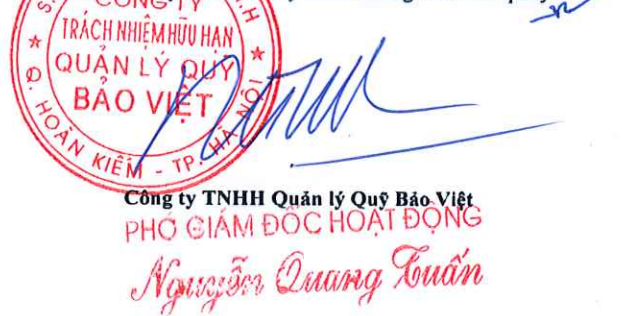 CÔNG TY
TRÁCH NHIỆM HỮU HẠN
QUẢN LÝ QUỸ
BẢO VIỆT
Q. HOÀN KIẾM - TP. HÀ NỘI
Công ty TNHH Quản lý Quỹ Bảo Việt
PHÓ GIÁM ĐỐC HOẠT ĐỘNG
Nguyễn Quang Tuấn